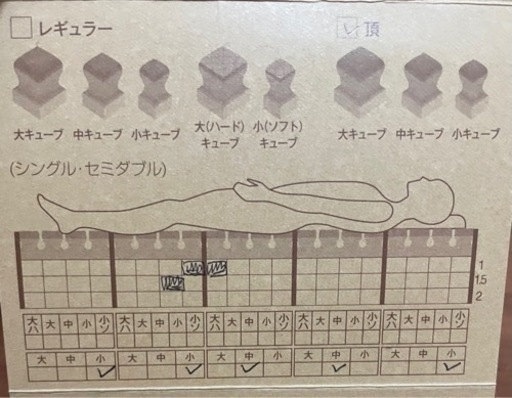 レギュラー
✓ 頂
大キューブ 中キューブ 小キューブ 大(ハード)キューブ 小(ソフト)キューブ 大キューブ 中キューブ 小キューブ
(シングル・セミダブル)
1
1.5
2
大ハ 大 中 小 小ソ 大ハ 大 中 小 小ソ 大ハ 大 中 小 小ソ 大ハ 大 中 小 小ソ 大ハ 大 中 小 小ソ
大 中 小 大 中 小 大 中 小 大 中 小 大 中 小
✓ ✓ ✓ ✓ ✓